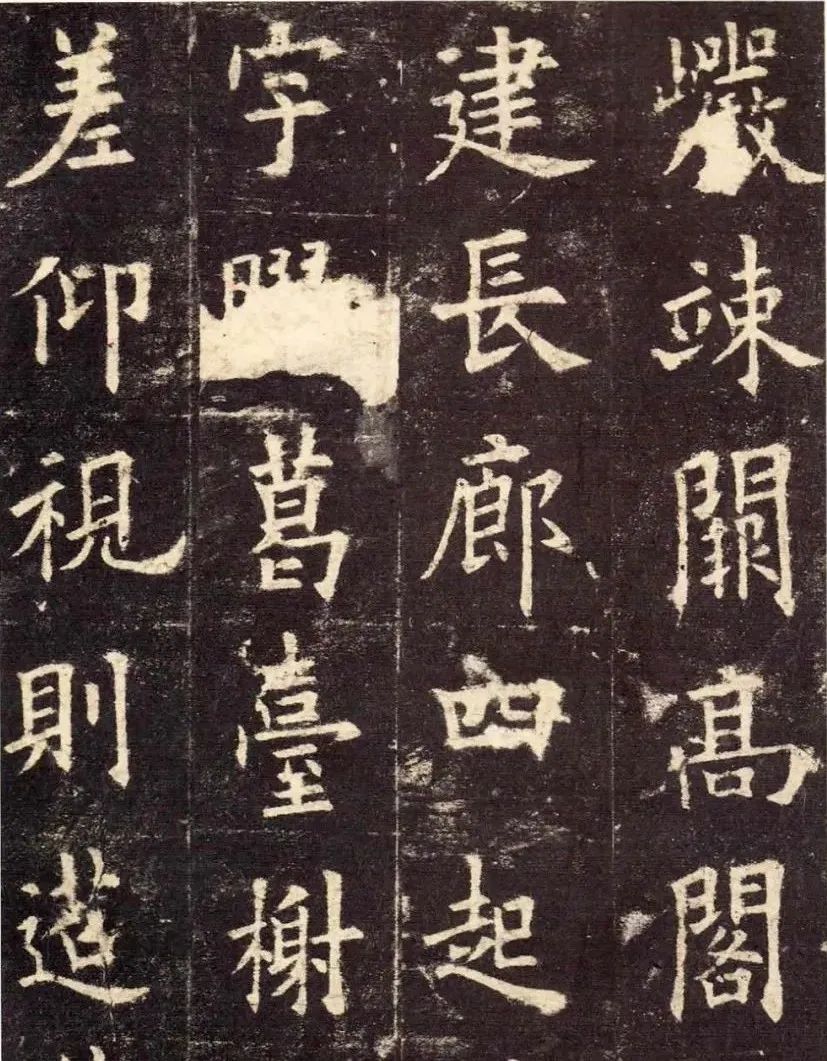 巖竦闕髙閣
建長廊四起
宇葛臺榭
差仰視則迢